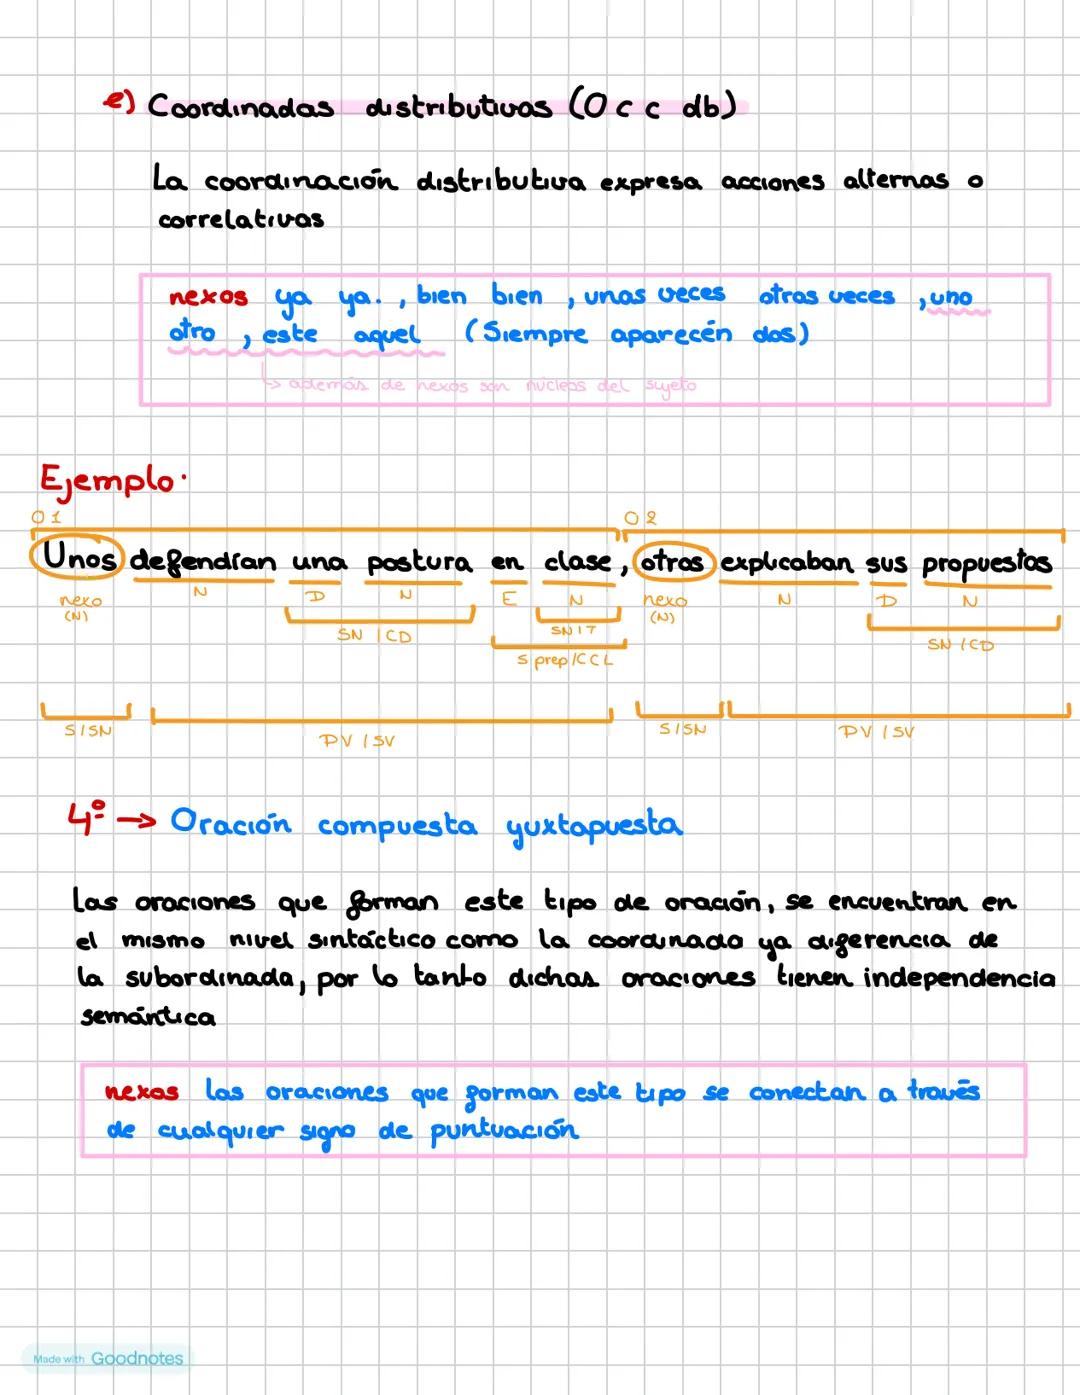 e) Coordinadas distributivas (O c c db)
La coordinación distributiva expresa acciones alternas o
correlativas
nexos ya ya. , bien bien , unas veces otras veces , uno
otro , este aquel (Siempre aparecén dos)
↳ además de nexos son núcleos del sujeto
Ejemplo.
O1 O2
Unos defendían una postura en clase, otros explicaban sus propuestas
nexo N D N E N nexo N D N
(N) (N)
SN / CD SN / T SN / CD
S prep / CCL
S / SN PV / SV S / SN PV / SV
4º → Oración compuesta yuxtapuesta
Las oraciones que forman este tipo de oración, se encuentran en
el mismo nivel sintáctico como la coordinada ya diferencia de
la subordinada, por lo tanto dichas oraciones tienen independencia
semántica
nexos las oraciones que forman este tipo se conectan a través
de cualquier signo de puntuación
Made with Goodnotes